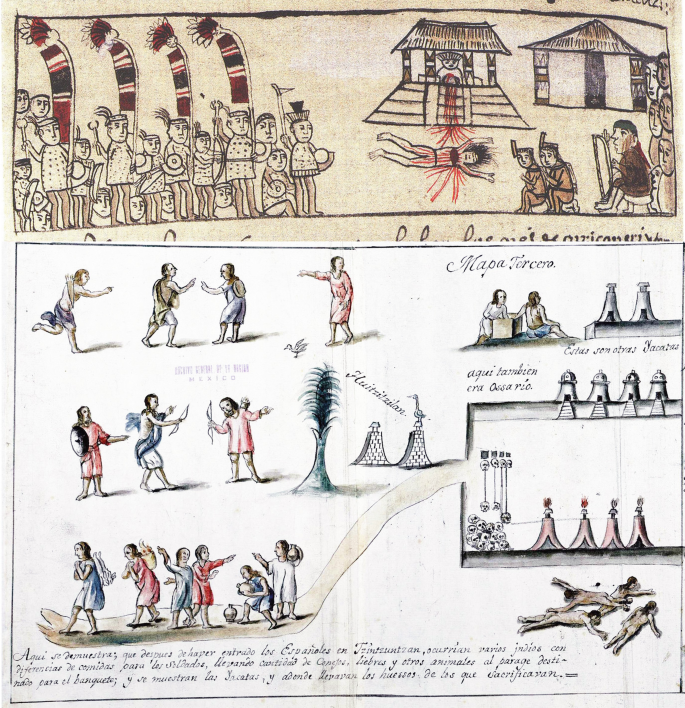 Mapa Tercero.
Estas son otras Yacatas
aqui tambien
era Ossario.
ARCHIVO GENERAL DE LA NACION
MEXICO
Huitzitzilan
Aqui se demuestra, que despues de haver entrado los Españoles en Tzintzuntzan, ocurrian varios indios con
diferencias de comidas para los Soldados, llevando cantidad de Conejos, liebres y otros animales al parage desti-
nado para el banquete; y se muestran las Yacatas, y adonde llevavan los huessos de los que Sacrificavan.=